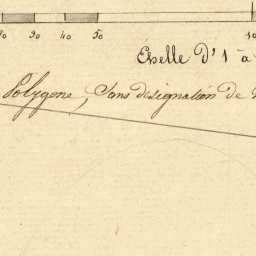 20 30 40 50 10
Échelle D'1 à
Polygone, Sans désignation de